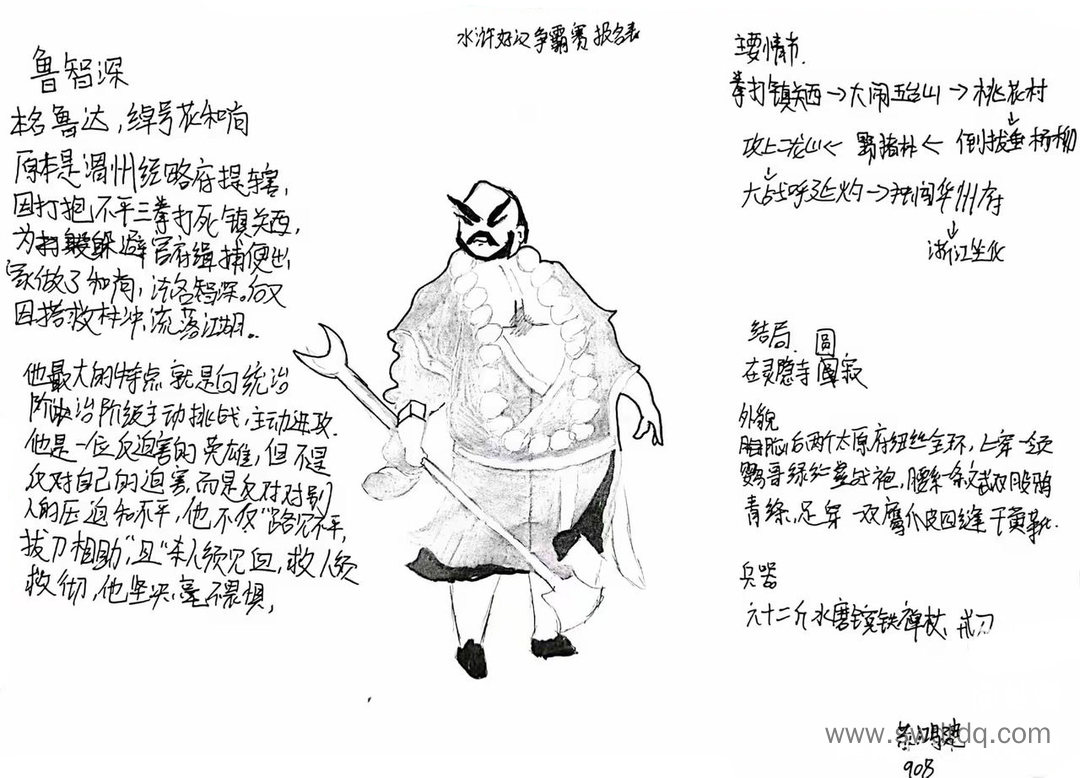 水浒好汉争霸赛报名表
鲁智深
本名鲁达,绰号花和尚
原本是渭州经略府提辖,
因打抱不平三拳打死镇关西,
为躲避官府缉捕便出
家做了和尚,法名智深。后又
因搭救林冲,流落江湖。
他最大的特点就是向统治
阶级主动挑战,主动进攻.
他是一位反迫害的英雄,但不是
反对自己的迫害,而是反对对别
人的压迫和不平,他不仅“路见不平,
拔刀相助”,且“杀人须见血,救人须
救彻,他坚决,毫不畏惧,
主要情节.
拳打镇关西→大闹五台山→桃花村
↓
攻上二龙山← 野猪林← 倒拔垂杨柳
↓
大战呼延灼→ 闹华州府
↓
浙江坐化
结局.
在灵隐寺圆寂
外貌
脑后两个太原府纽丝金环,上穿一领
鹦哥绿纻丝战袍,腰系一条文武双股鸦
青绦,足穿一双鹰爪皮四缝干黄靴.
兵器
六十二斤水磨镔铁禅杖、戒刀
908